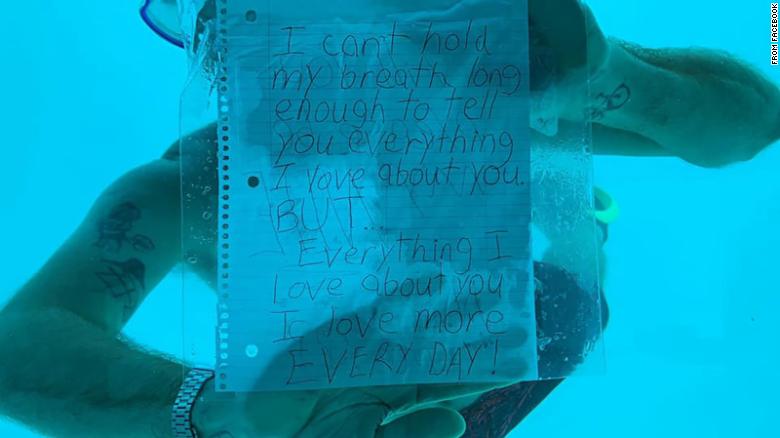 I can't hold
my breath long
enough to tell
you everything
I love about you.
BUT...
Everything I
Love about you
I love more
EVERY DAY!
FROM FACEBOOK